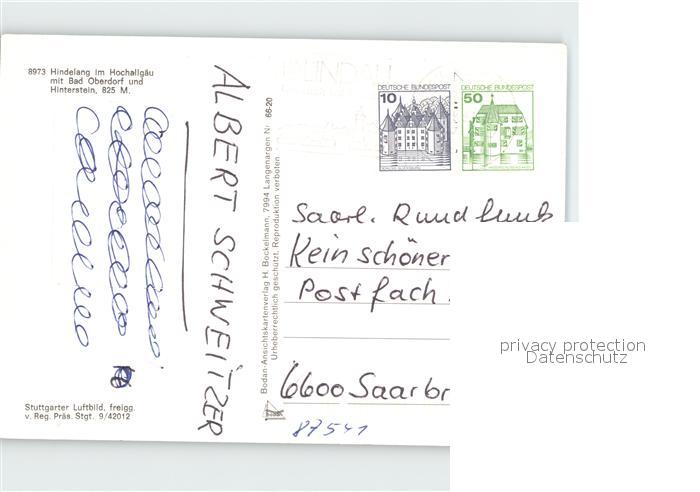 8973 Hindelang im Hochallgäu
mit Bad Oberdorf und
Hinterstein, 825 M.
ALBERT SCHWEITZER
Stuttgarter Luftbild, freigg.
v. Reg. Präs. Stgt. 9/42012
Bodan-Ansichtskartenverlag H. Bockelmann, 7994 Langenargen Nr. 66-20
Urheberrechtlich geschützt. Reproduktion verboten.
LINDAU
10 DEUTSCHE BUNDESPOST
50 DEUTSCHE BUNDESPOST
Saarl. Rundfunk
Kein schöner
Postfach
6600 Saarbr
87541
privacy protection
Datenschutz